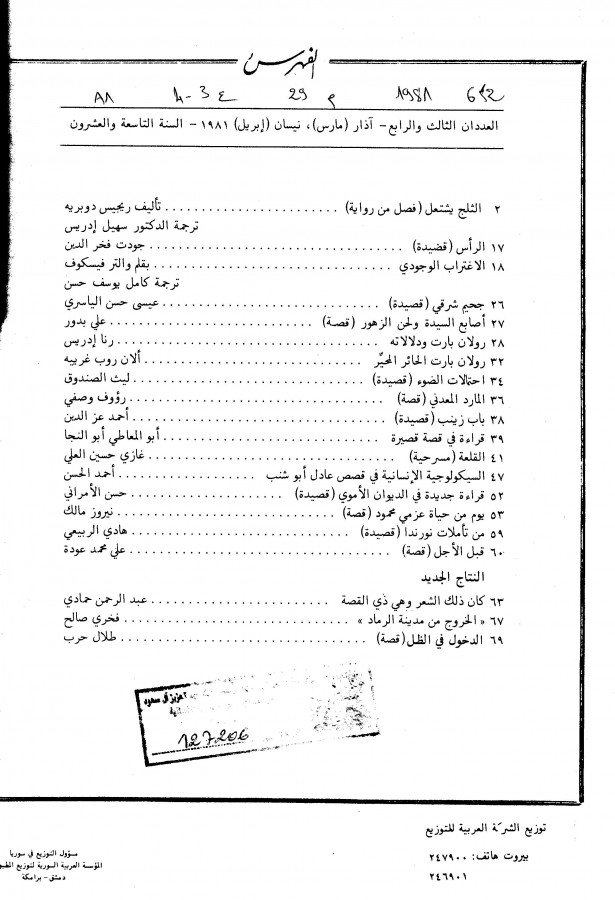 الفهرس
٨٨ ٤-٣ ع 29 م ١٩٨١
العددان الثالث والرابع- آذار (مارس)، نيسان (إبريل) ١٩٨١- السنة التاسعة والعشرون
٢ الثلج يشتعل (فصل من رواية) تأليف ريجيس دوبريه
ترجمة الدكتور سهيل إدريس
١٧ الرأس (قضيدة) جودت فخر الدين
١٨ الاغتراب الوجودي بقلم والتر فيسكوف
ترجمة كامل يوسف حسن
٢٦ جحيم شرقي (قصيدة) عيسى حسن الياسري
٢٧ أصابع السيدة ولحن الزهور (قصة) علي بدور
٢٨ رولان بارت ودلالاته رنا إدريس
٣٢ رولان بارت الحائر المحيِّر ألان روب غرييه
٣٤ احتمالات الضوء (قصيدة) ليث الصندوق
٣٦ المارد المعدني (قصة) رؤوف وصفي
٣٨ باب زينب (قصيدة) أحمد عز الدين
٣٩ قراءة في قصة قصيرة أبو المعاطي أبو النجا
٤١ القلعة (مسرحية) غازي حسين العلي
٤٧ السيكولوجية الإنسانية في قصص عادل أبو شنب أحمد الحسن
٥٢ قراءة جديدة في الديوان الأموي (قصيدة) حسن الأمراني
٥٣ يوم من حياة عزمي محمود (قصة) نيروز مالك
٥٩ من تأملات نورندا (قصيدة) هادي الربيعي
٦٠ قبل الأجل (قصة) علي محمد عودة
النتاج الجديد
٦٣ كان ذلك الشعر وهي ذي القصة عبد الرحمن حمادي
٦٧ « الخروج من مدينة الرماد » فخري صالح
٦٩ الدخول في الظل (قصة) طلال حرب
127206
توزيع الشركة العربية للتوزيع
بيروت هاتف: ٢٤٧٩٠٠
٢٤٦٩٠١
مسؤول التوزيع في سوريا
المؤسسة العربية السورية لتوزيع
دمشق- برامكة